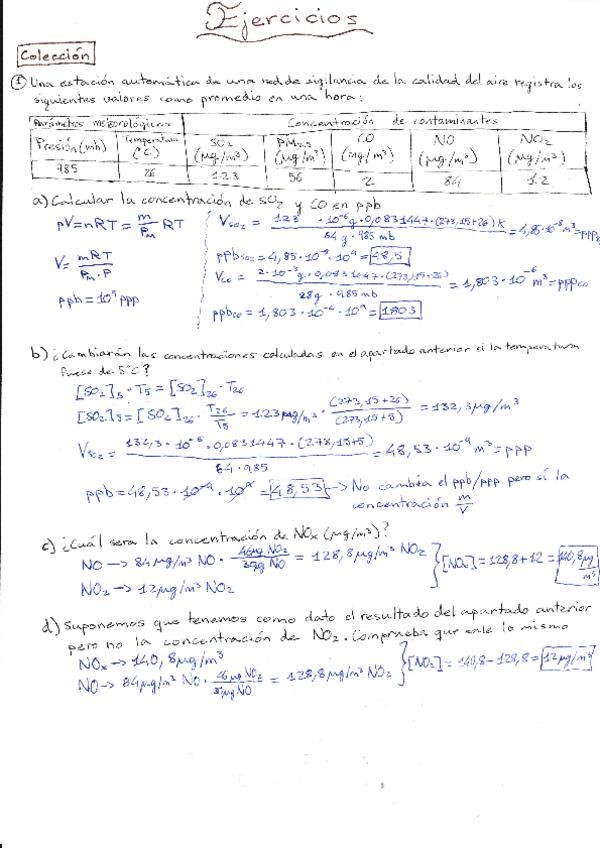 Ejercicios
Colección
① Una estación automática de una red de vigilancia de la calidad del aire registra los
siguientes valores como promedio en una hora:
Parámetros meteorológicos Concentración de contaminantes
Presión (mb) Temperatura (°C) SO₂ (µg/m³) PM₂,₅ (µg/m³) CO (mg/m³) NO (µg/m³) NO₂ (µg/m³)
985 26 123 56 2 84 12
a) Calcular la concentración de SO₂ y CO en ppb
pV=nRT = m/Pm RT
V = mRT/Pm·P
ppb = 10⁹ ppp
V SO₂ = 123 · 10⁻⁶g · 0,0831447 · (273,15+26) K / 64 g · 985 mb = 4,85·10⁻⁸ m³ = ppp
ppb SO₂ = 4,85 · 10⁻⁸ · 10⁹ = 48,5
V CO = 2 · 10⁻³g · 0,0831447 · (273,15+26) / 28g · 985 mb = 1,803 · 10⁻⁶ m³ = ppp CO
ppb CO = 1,803 · 10⁻⁶ · 10⁹ = 1803
b) ¿Cambiarán las concentraciones calculadas en el apartado anterior si la temperatura
fuese de 5°C?
[SO₂]₅ · T₅ = [SO₂]₂₆ · T₂₆
[SO₂]₅ = [SO₂]₂₆ · T₂₆/T₅ = 123 µg/m³ · (273,15+26)/(273,15+5) = 132,3 µg/m³
V SO₂ = 132,3 · 10⁻⁶ · 0,0831447 · (273,15+5) / 64 · 985 = 48,53 · 10⁻⁹ m³ = ppp
ppb = 48,53 · 10⁻⁹ · 10⁹ = 48,53 → No cambia el ppb/ppp pero sí la
concentración m/V
c) ¿Cuál sera la concentración de NOx (µg/m³)?
NO → 84 µg/m³ NO · 46µg NO₂/30µg NO = 128,8 µg/m³ NO₂
NO₂ → 12 µg/m³ NO₂
[NOx] = 128,8 + 12 = 140,8 µg/m³
d) Suponemos que tenemos como dato el resultado del apartado anterior
pero no la concentración de NO₂. Comprueba que sale lo mismo
NOx → 140,8 µg/m³
NO → 84 µg/m³ NO · 46µg NO₂/30µg NO = 128,8 µg/m³ NO₂
[NO₂] = 140,8 - 128,8 = 12 µg/m³